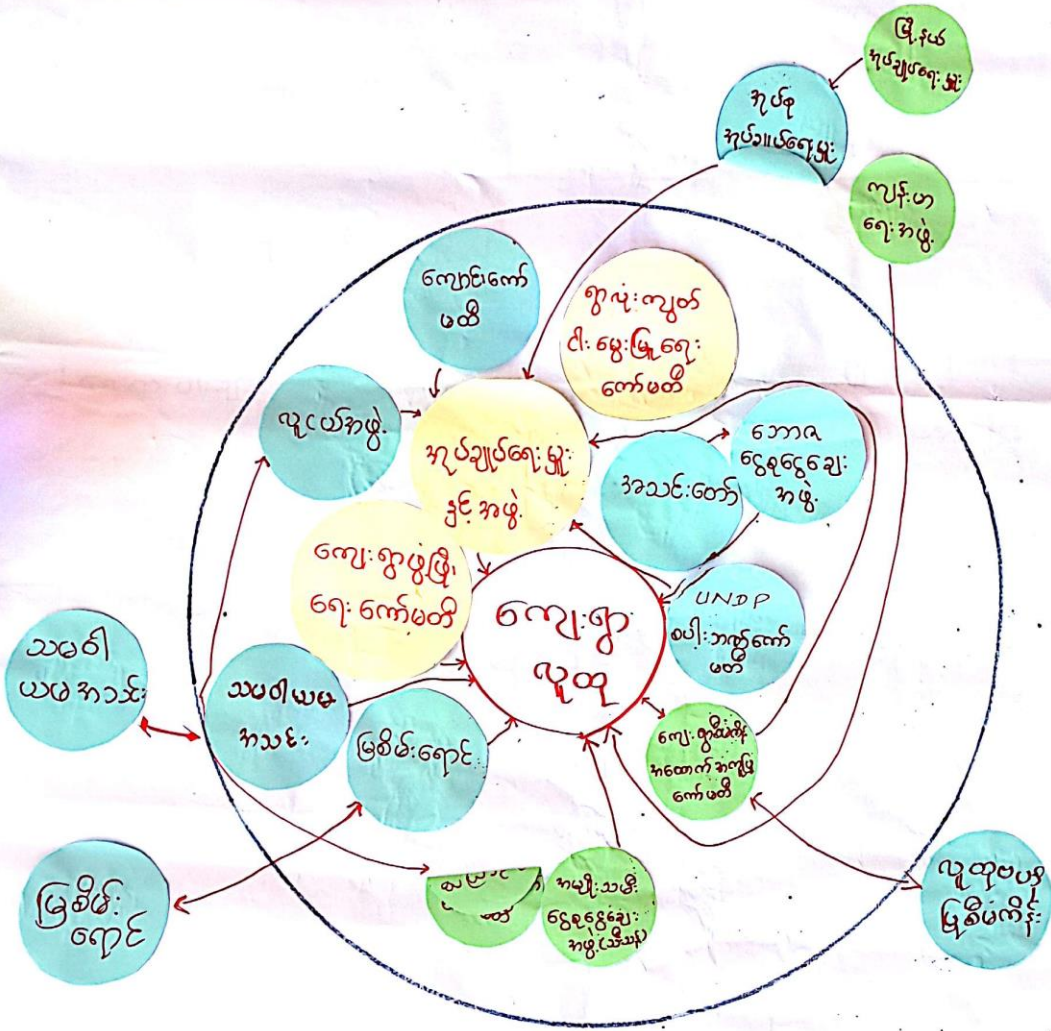 မြို့နယ်
အုပ်ချုပ်ရေးမှူး
အုပ်စု
အုပ်ချုပ်ရေးမှူး
ကျန်းမာ
ရေးအဖွဲ့
ကျောင်းကော်
မတီ
ရွာလုံးကျွတ်
ငါးမွေးမြူရေး
ကော်မတီ
လူငယ်အဖွဲ့
အုပ်ချုပ်ရေးမှူး
နှင့်အဖွဲ့
အသင်းတော်
ဘောဇ
ငွေစုငွေချေး
အဖွဲ့
ကျေးရွာဖွံ့ဖြိုး
ရေးကော်မတီ
ကျေးရွာ
လူထု
UNDP
စပါးဘဏ်ကော်
မတီ
သမဝါ
ယမအသင်း
သမဝါယမ
အသင်း
မြစိမ်းရောင်
ကျေးရွာစီမံကိန်း
အထောက်အကူပြု
ကော်မတီ
မြစိမ်း
ရောင်
အမျိုးသမီး
ငွေစုငွေချေး
အဖွဲ့(သီသန့်)
လူထုဗဟိုပြု
စီမံကိန်း